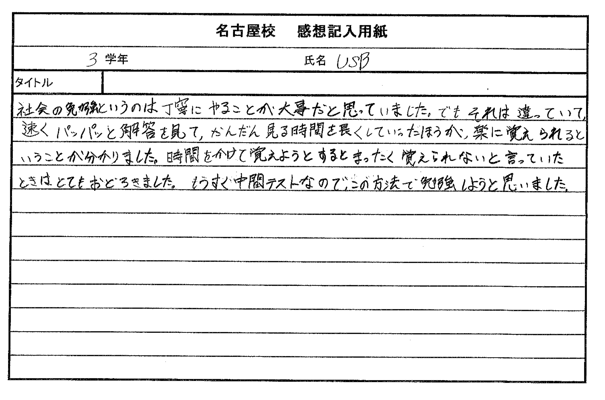 名古屋校 感想記入用紙
3 学年 氏名 USB
タイトル
社会の勉強というのは丁寧にやることが大事だと思っていました。でもそれは違っていて、
速くパッパッと解答を見て、だんだん見る時間を長くしていったほうが、楽に覚えられると
いうことが分かりました。時間をかけて覚えようとするとまったく覚えられないと言っていた
ときはとてもおどろきました。もうすぐ中間テストなので、この方法で勉強しようと思いました。